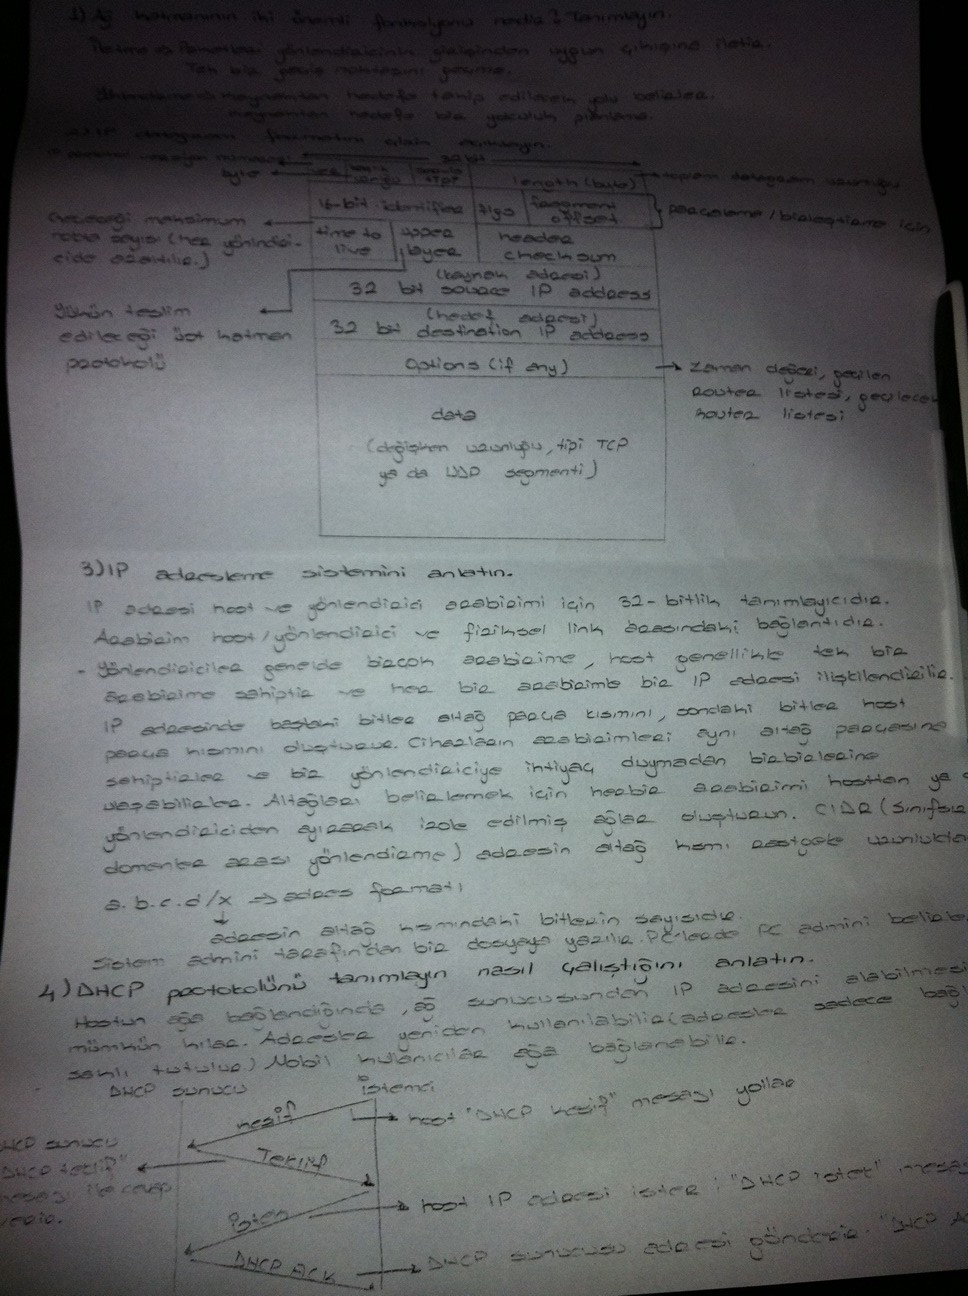 1) Ağ katmanının iki önemli fonksiyonu nedir? Tanımlayın.
İletme → Paketleri yönlendiricinin girişinden uygun çıkışına iletir.
Tek bir geçiş noktasını geçme.
Yönlendirme → kaynaktan hedefe takip edilecek yolu belirler.
kaynaktan hedefe bir yolculuk planlama.
2) IP datagram formatını çizin açıklayın.
32 bit
byte
length (byte)
toplam datagram uzunluğu
16-bit identifier
flgs
fragment offset
parçalama / birleştirme için
Geçeceği maksimum
nokta sayısı (her yönlendiri-
cide azaltılır.)
time to live
upper layer
header checksum
(kaynak adresi)
32 bit source IP address
Yükün teslim
edileceği üst katman
protokolü
(hedef adresi)
32 bit destination IP address
Options (if any)
zaman değeri, geçilen
router listesi, geçilecek
router listesi
data
(değişken uzunluğu, tipi TCP
ya da UDP segmenti)
3) IP adresleme sistemini anlatın.
IP adresi host ve yönlendirici arabirimi için 32-bitlik tanımlayıcıdır.
Arabirim host/yönlendirici ve fiziksel link arasındaki bağlantıdır.
- Yönlendiriciler genelde birçok arabirime, host genellikle tek bir
arabirime sahiptir ve her bir arabirimle bir IP adresi ilişkilendirilir.
IP adresinde baştaki bitler altağ parça kısmını, sondaki bitler host
parça kısmını oluşturur. Cihazların arabirimleri aynı altağ parçasına
sahiptirler ve bir yönlendiriciye ihtiyaç duymadan birbirlerine
ulaşabilirler. Altağları belirlemek için herbir arabirimi hosttan ya
yönlendiriciden ayırarak izole edilmiş ağlar oluşturun. CIDR (Sınıfsız
domenler arası yönlendirme) adresin altağ kısmı rastgele uzunlukta
a.b.c.d/x → adres formatı
adresin altağ kısmındaki bitlerin sayısıdır.
Sistem admini tarafından bir dosyaya yazılır. PC'lerde PC admini belirler
4) DHCP protokolünü tanımlayın nasıl çalıştığını anlatın.
Hostun ağa bağlandığında, ağ sunucusundan IP adresini alabilmesi
mümkün kılar. Adresler yeniden kullanılabilir (adresler sadece bağlı
saklı tutulur.) Mobil kullanıcılar ağa bağlanabilir.
DHCP sunucu
istemci
keşif
host "DHCP keşif" mesajı yollar
Teklif
DHCP sunucu
"DHCP teklif"
mesajı ile cevap
verir.
istek
host IP adresi ister : "DHCP istek" mesajı
DHCP ACK
DHCP sunucusu adresi gönderir. "DHCP AC